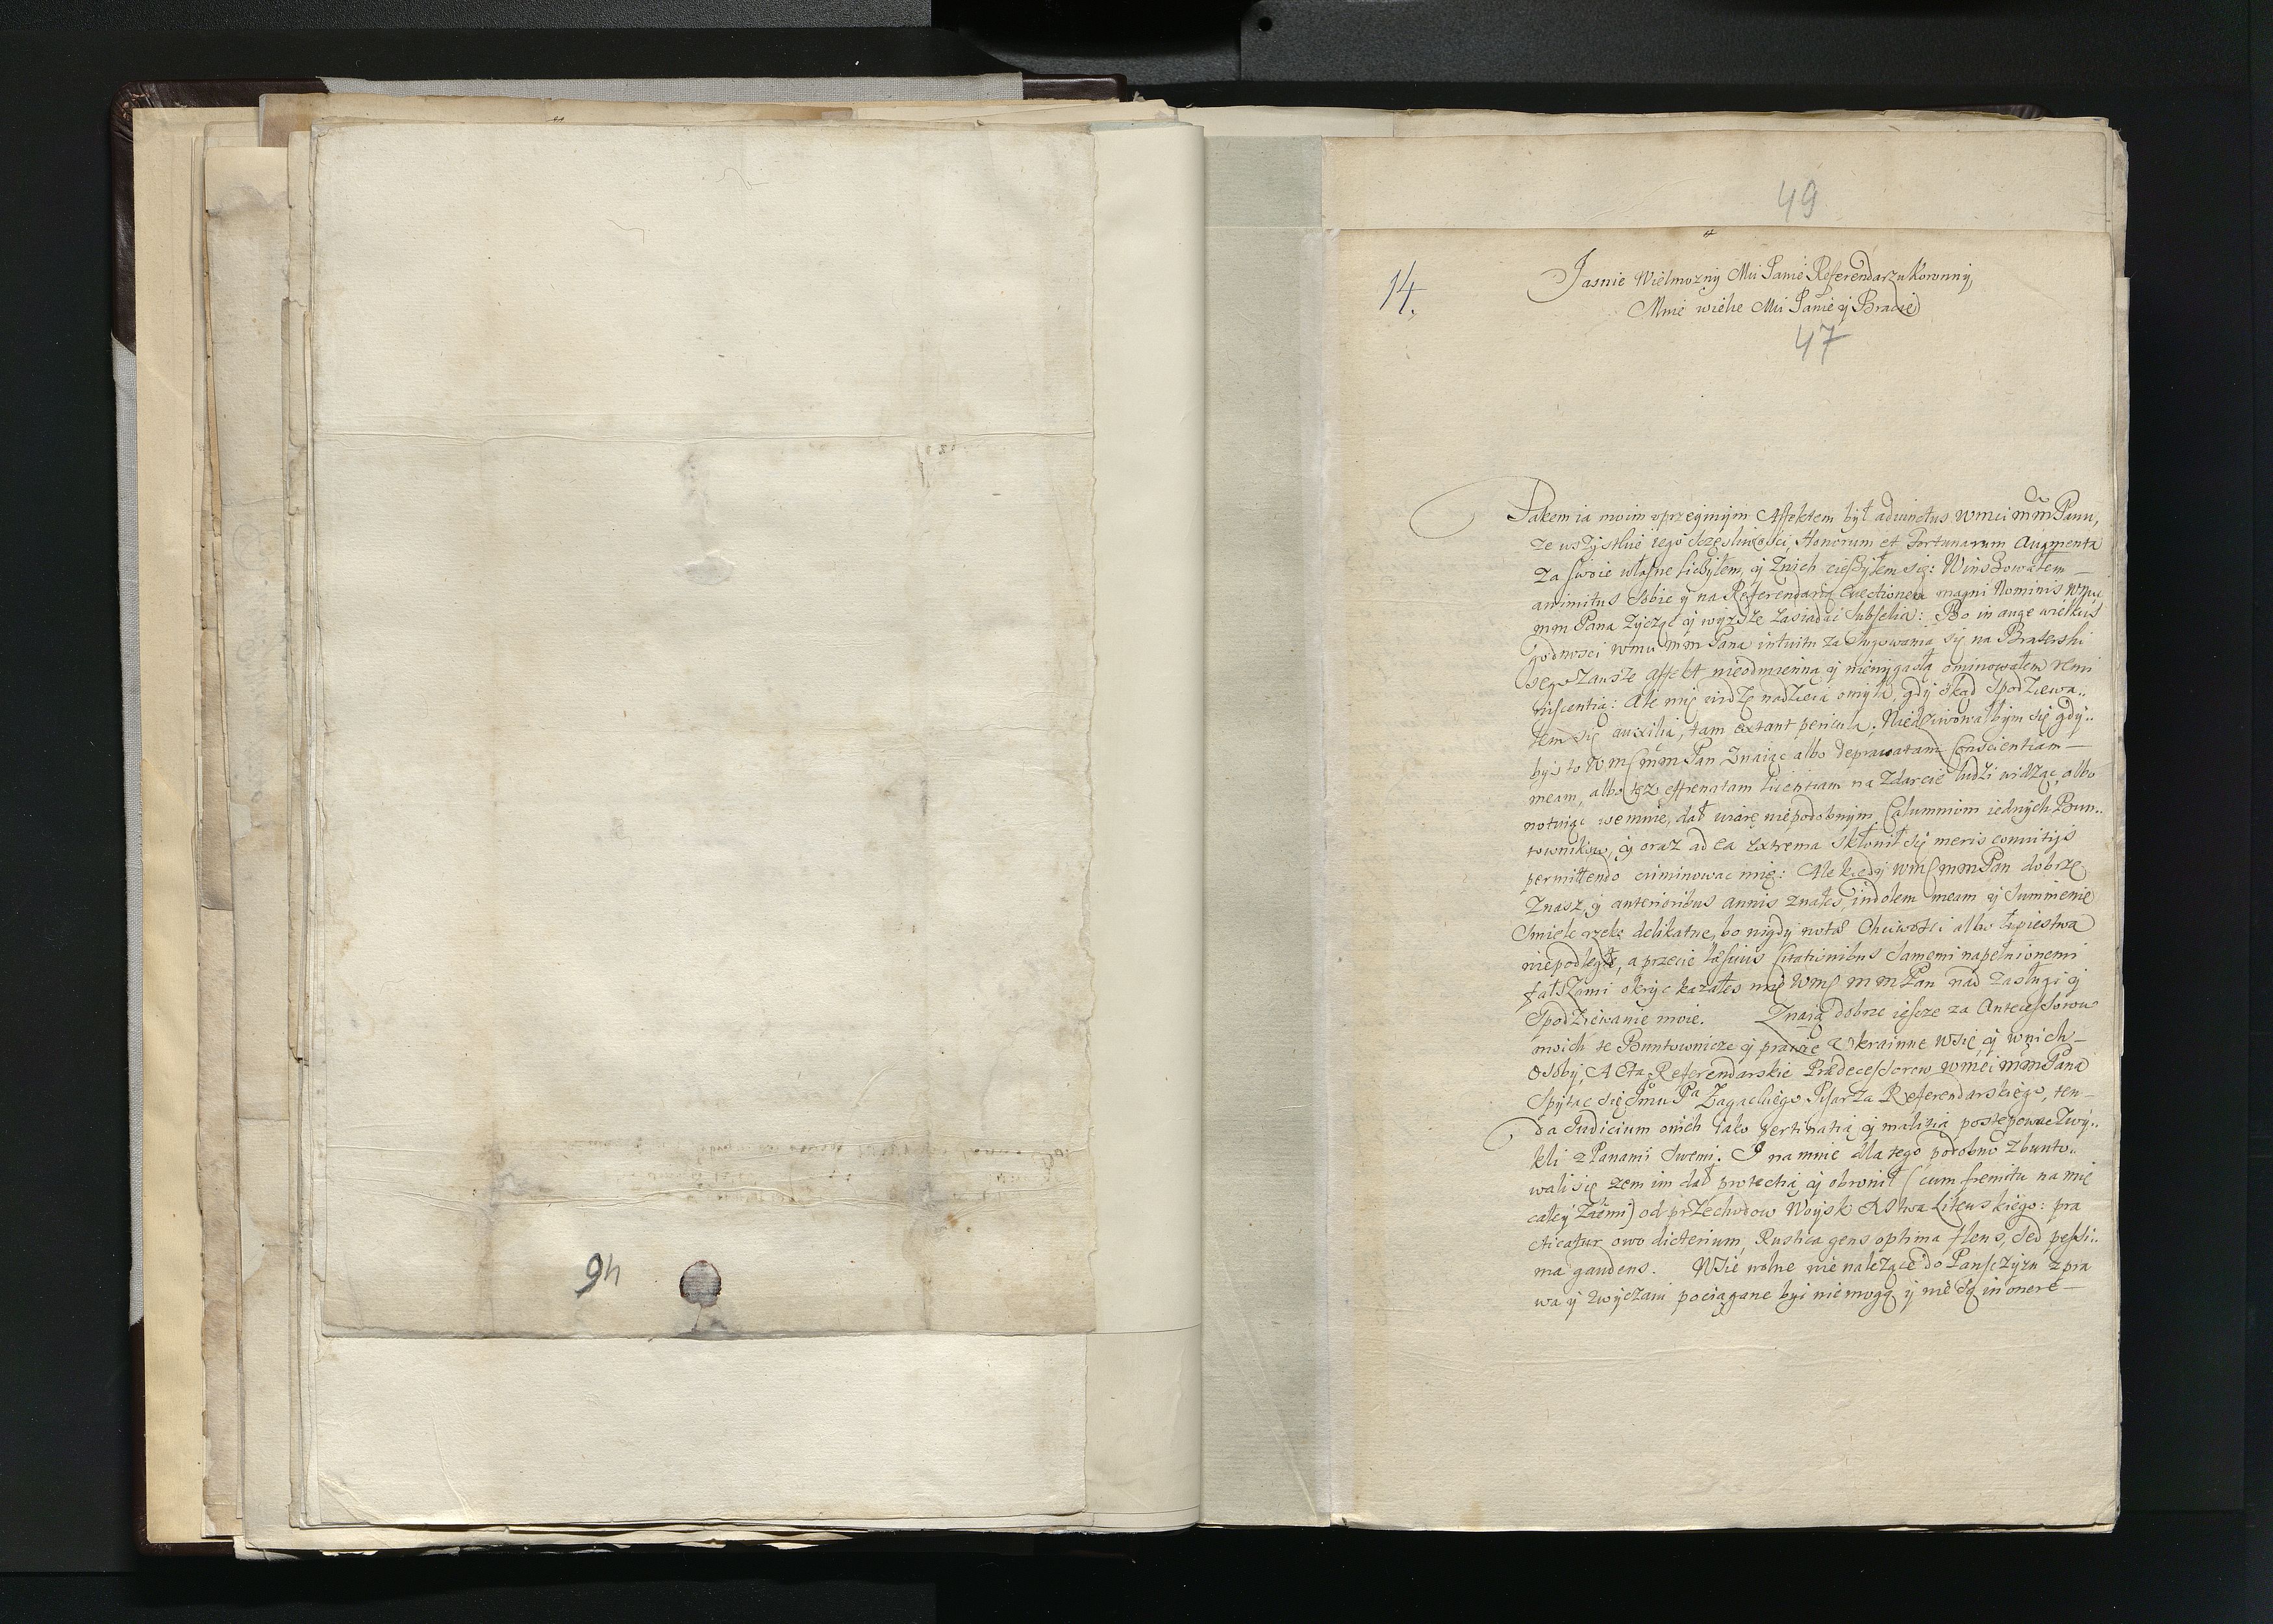 46
49
14.
Jasnie Wielmozny Mci Panie Referendarzu Koronny,
Mnie wielce Mci Panie y Bracie
47
Jakem ia moim uprzeymym Affektem był adiunctus WMci mm Panu,
ze wszystkie iego szczęsliwości, Honorum et Fortunarum Augmenta
za swoie własne liczyłem, y z nich cieszyłem się: Winszowałem
animitus sobie y na Referendarią Evectionem magni Nominis WMci
mm Pana życząc y wyższe zasiadać Subselia: Bo in auge wielkiey
godności WMci mm Pana intuitu zasługowania się na Braterski
Jego zawsze affekt nieodmienną y niewygasłą ominowałem remi
niscentią: Ale mię widzę nadzieia omyla, gdy skąd spodziewa..
łem się auxilia, tam extant pericula; Niedziwowałbym się gdy..
byś to WMC mm Pan znaiąc albo depravatam Conscientiam
meam, albo też effrenatam licentiam na zdarcie ludzi widząc, albo
notuiąc we mnie, dał wiarę niepodobnym Calumniom iednych Bun..
townikow, y oraz ad ea extrema skłonił się meris convitijs
permittendo criminowac mię: Ale kiedy WMC mm Pan dobrze
znasz, y anterioribus annis znałes, indolem meam y summienie
smiele rzekę delikatne, bo nigdy notae Chciwości albo łupiestwa
niepodległe, a przecie Citationibus samemi napełnionemi
fałszami okryc kazałes mię WMC mm Pan nad zasługi y
spodziewanie moie. Znaią dobrze iescze za Antecessorow
moich te Buntownicze y prawie Ukrainne Wsie y w nich
Osoby, Acta Referendarskie Praedecessorow WMci mm Pana
Spytac się Jmci Pa Zagackiego Pisarza Referendarskiego, ten
da Judicium o nich iako pertinatią y malitią postępowac zwy..
kli z Panami swemi. I na mnie dla tego podobno zbunto..
wali się zem im dał protectią y obronił (cum fremitu na mię
całey Ziemi) od przechodow Woysk Xstwa Litewskiego: pra
cticatur owo dicterium, Rustica gens optima flens, sed pessi..
ma gaudens. Wsie wolne nie należące do Panszczyzn z pra
wa y zwyczaiu pociągane być niemogą y nie są in onere